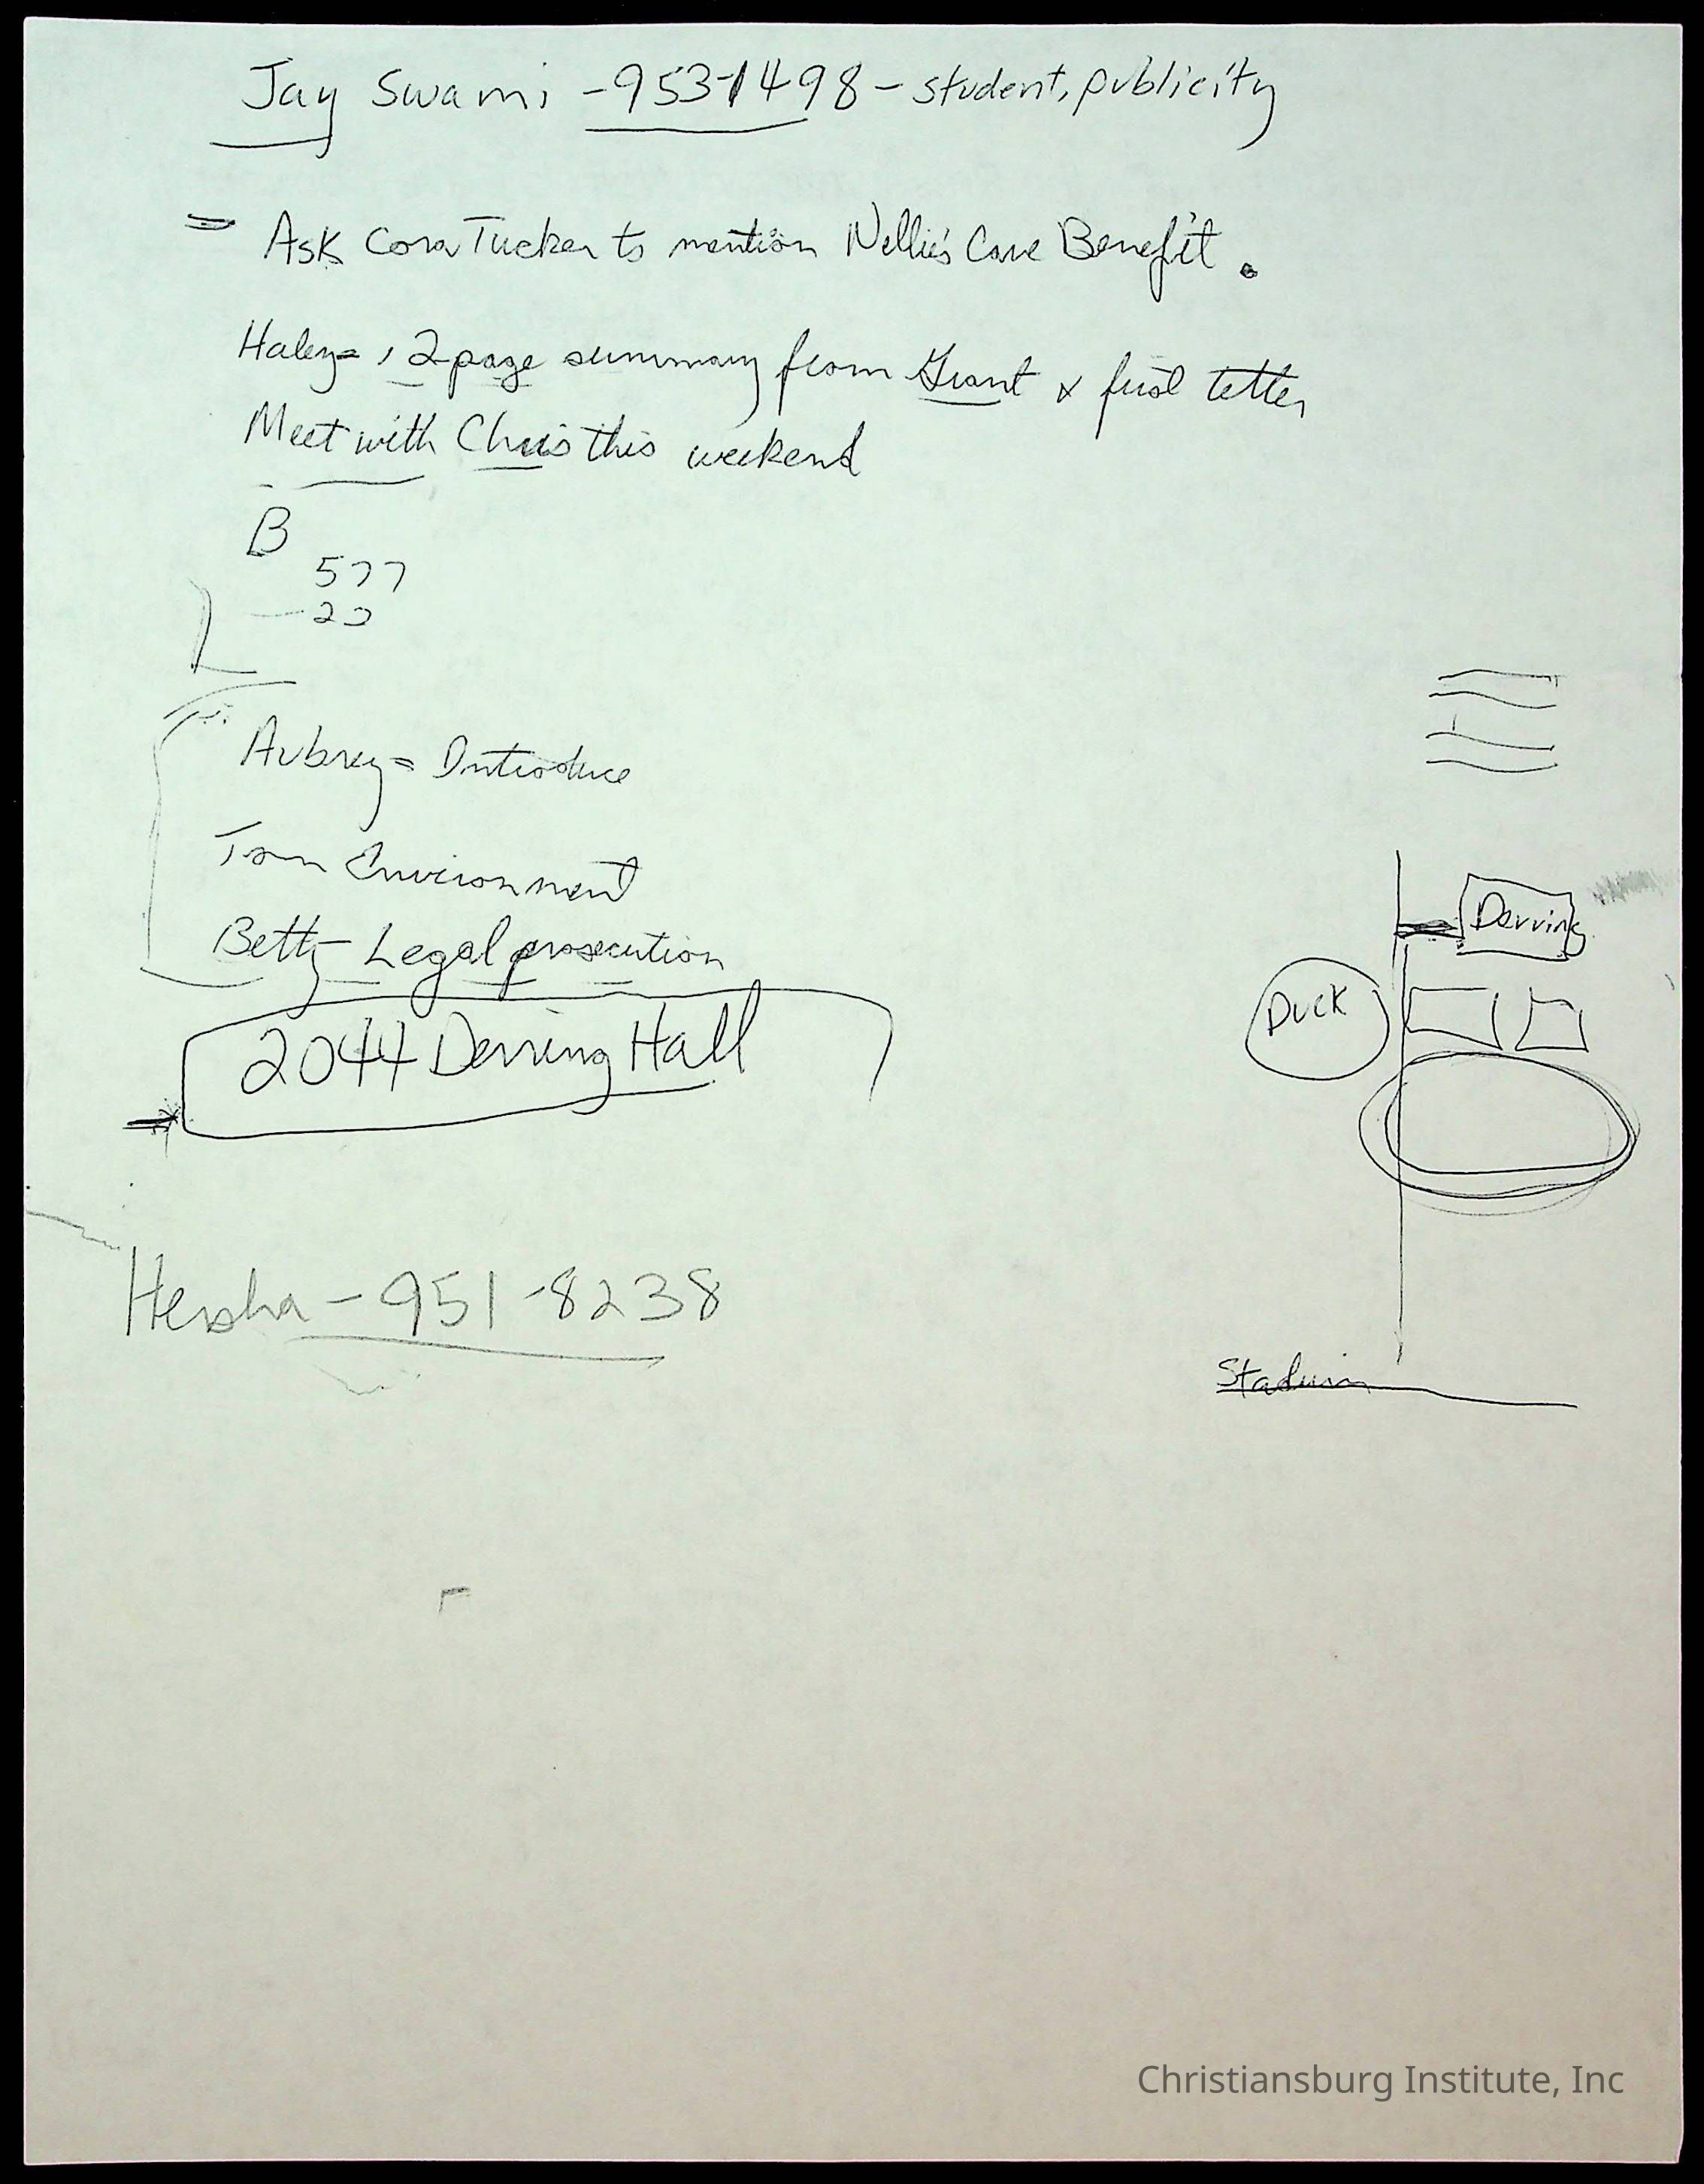 Jay Swami - 953-1498 - student, publicity
= Ask Cora Tucker to mention Nellie's Cave Benefit.
Haley = , 2 page summary from Grant & first letter
Meet with Chris this weekend
B
577
Aubrey = Introduce
Tom Environment
Betty - Legal prosecution
2044 Derring Hall
Derring
Duck
Hersha - 951-8238
Stadium
Christiansburg Institute, Inc